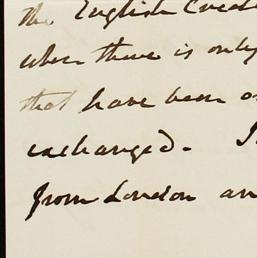 the English
when there is only
that have been
exchanged.
from London an